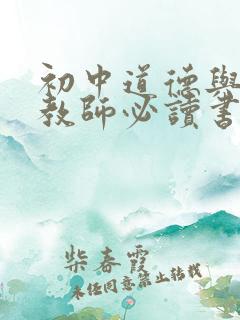 初中道德與
教師必讀書
柴春霞
未经同意禁止转载